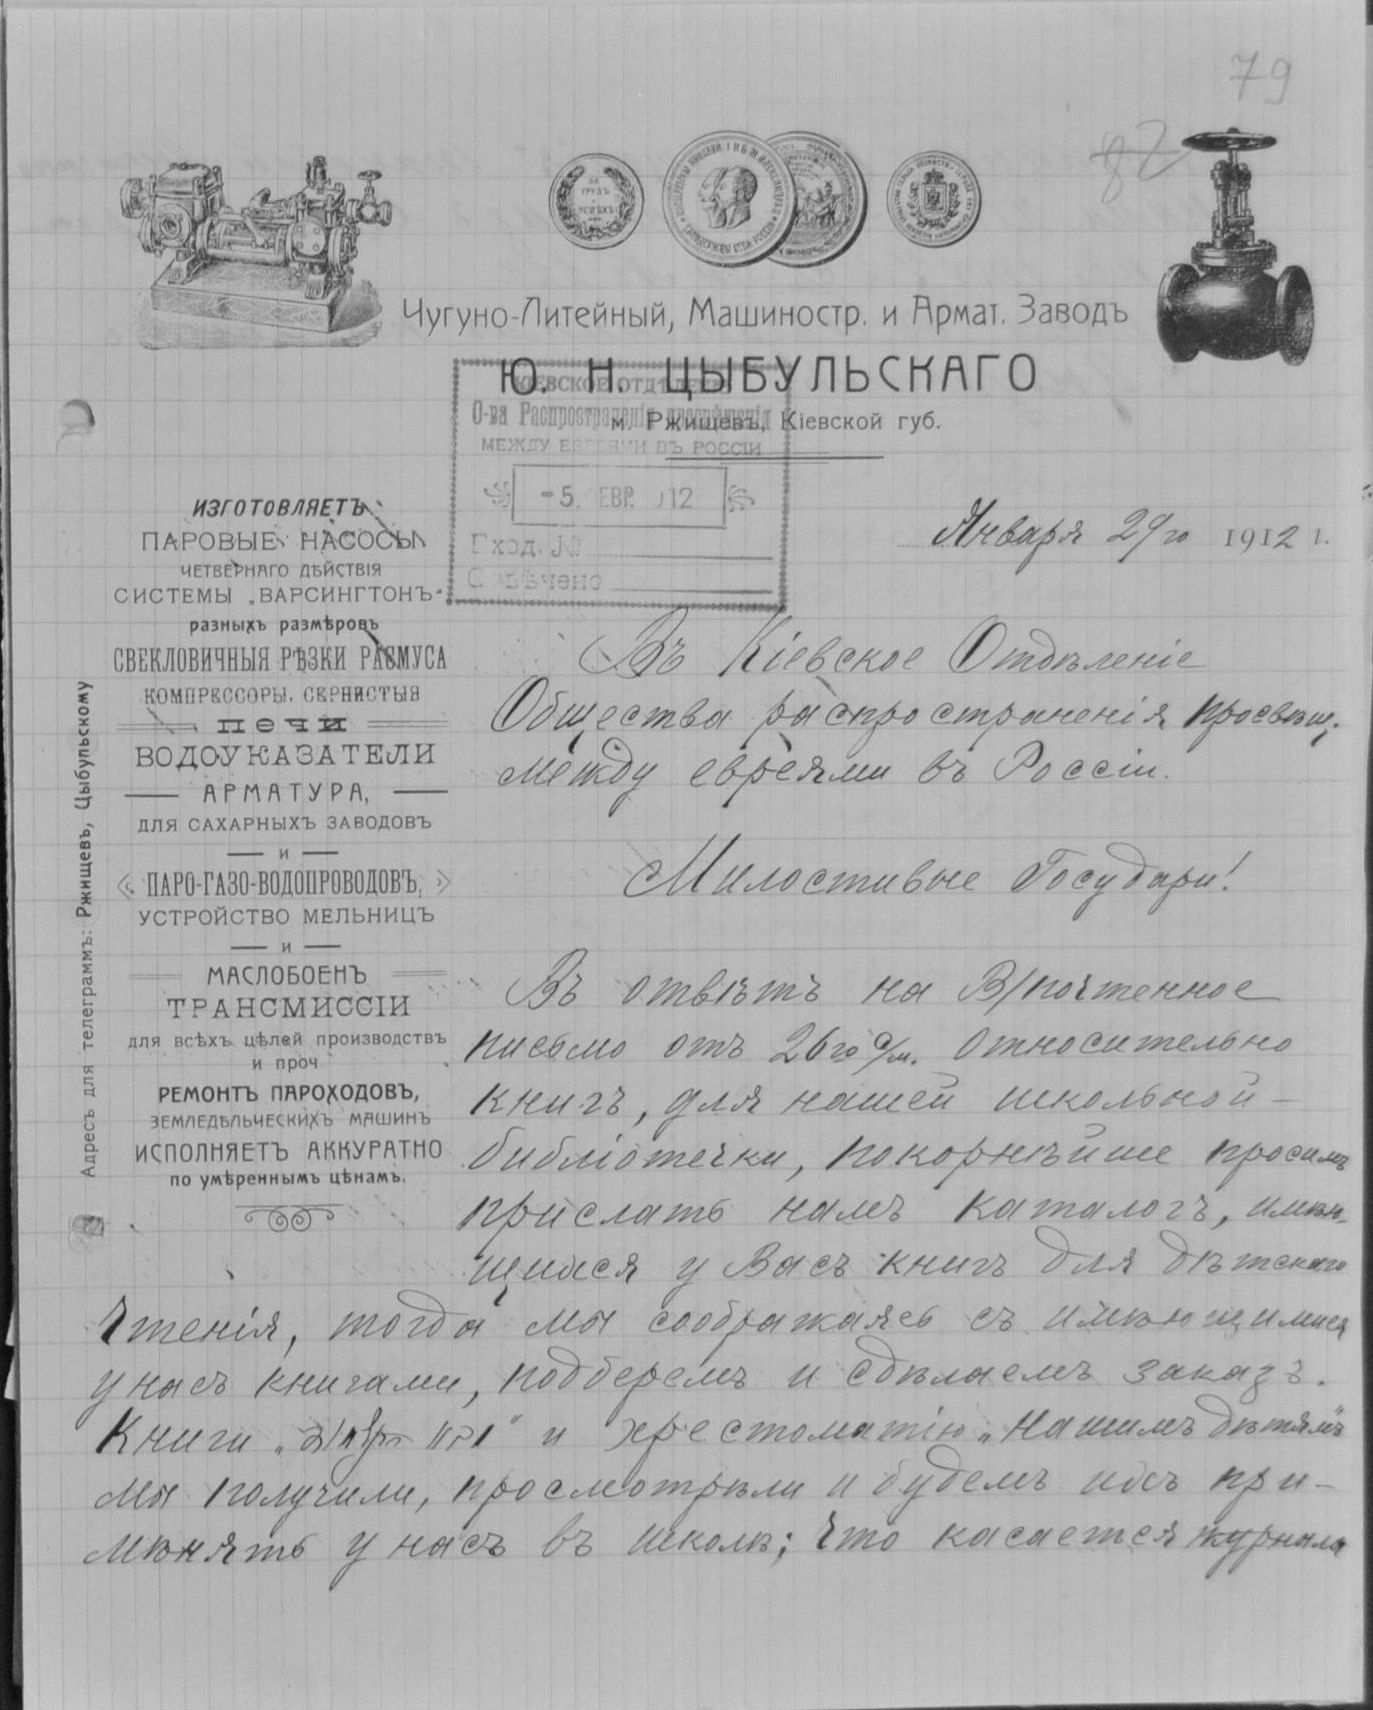 79
82
ЗА ТРУДЪ И УСПѢХЪ
Чугуно-Литейный, Машиностр. и Армат. Заводъ
Ю. Н. ЦЫБУЛЬСКАГО
м. Ржищевъ, Кіевской губ.
КІЕВСКОЕ ОТДѢЛЕНІЕ
О-ва Распространенія просвѣщенія
МЕЖДУ ЕВРЕЯМИ ВЪ РОССІИ
- 5. ФЕВР. 1912
Вход. №
Отвѣчено
Января 29го 1912 г.
ИЗГОТОВЛЯЕТЪ:
ПАРОВЫЕ НАСОСЫ
ЧЕТВЕРНАГО ДѢЙСТВІЯ
СИСТЕМЫ „ВАРСИНГТОНЪ“
разныхъ размѣровъ
СВЕКЛОВИЧНЫЯ РѢЗКИ РАСМУСА
КОМПРЕССОРЫ. СЕРНИСТЫЯ
ПЕЧИ
ВОДОУКАЗАТЕЛИ
АРМАТУРА,
ДЛЯ САХАРНЫХЪ ЗАВОДОВЪ
И
ПАРО-ГАЗО-ВОДОПРОВОДОВЪ,
УСТРОЙСТВО МЕЛЬНИЦЪ
И
МАСЛОБОЕНЪ
ТРАНСМИССІИ
для всѣхъ цѣлей производствъ
и проч
РЕМОНТЪ ПАРОХОДОВЪ,
ЗЕМЛЕДѢЛЬЧЕСКИХЪ МАШИНЪ
ИСПОЛНЯЕТЪ АККУРАТНО
по умѣреннымъ цѣнамъ.
Адресъ для телеграммъ: Ржищевъ, Цыбульскому
Въ Кіевское Отдѣленіе
Общества распространенія просвѣщ.
между евреями въ Россіи.
Милостивые Государи!
Въ отвѣтъ на В/почтенное
письмо отъ 26го с/м. относительно
книгъ, для нашей школьной –
библіотечки, покорнѣйше просимъ
прислать намъ каталогъ, имѣю-
щихся у Васъ книгъ для дѣтскаго
чтенія, тогда мы соображаясь съ имѣющимися
у насъ книгами, подберемъ и сдѣлаемъ заказъ.
Книги „ №1“ и хрестоматію „Нашимъ дѣтямъ“
мы получили, просмотрѣли и будемъ ихъ при-
мѣнять у насъ въ школѣ; что касается журнала